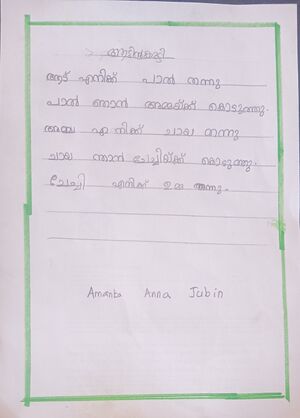 ആട്ടിൻകുട്ടി
ആട് എനിക്ക് പാൽ തന്നു
പാൽ ഞാൻ അമ്മയ്ക്ക് കൊടുത്തു.
അമ്മ എനിക്ക് ചായ തന്നു
ചായ ഞാൻ ചേച്ചിയ്ക്ക് കൊടുത്തു.
ചേച്ചി എനിക്ക് ഉമ്മ തന്നു.
Amanta Anna Jubin